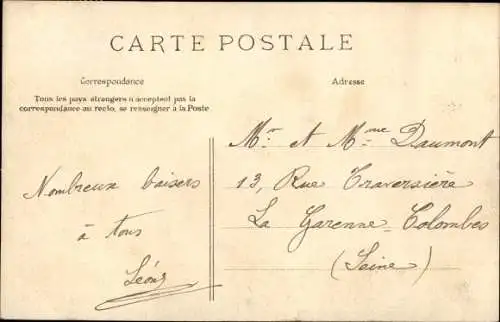 CARTE POSTALE
Correspondance
Adresse
Tous les pays étrangers n'acceptent pas la
correspondance au recto, se renseigner à la Poste
Nombreux baisers
à tous
Léon
Mr. et Mme Daumont
13, Rue Traversière
La Garenne-Colombes
(Seine)